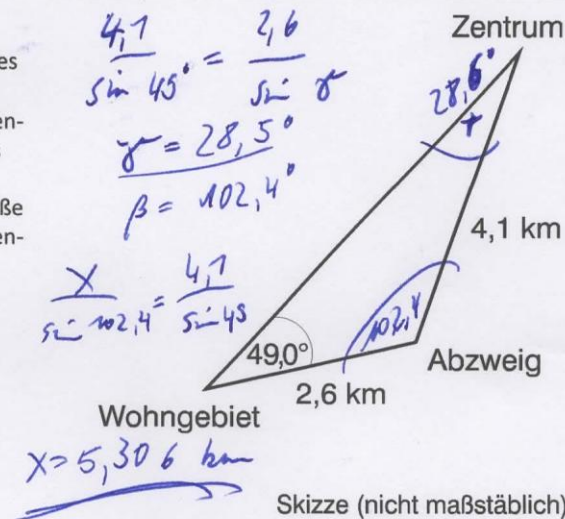 es
en-
ße
en-
4,1 / sin 49° = 2,6 / sin γ
γ = 28,5°
β = 102,4°
x / sin 102,4 = 4,1 / sin 49
x = 5,306 km
Zentrum
28,6°
γ
4,1 km
102,4
49,0°
Abzweig
2,6 km
Wohngebiet
Skizze (nicht maßstäblich)